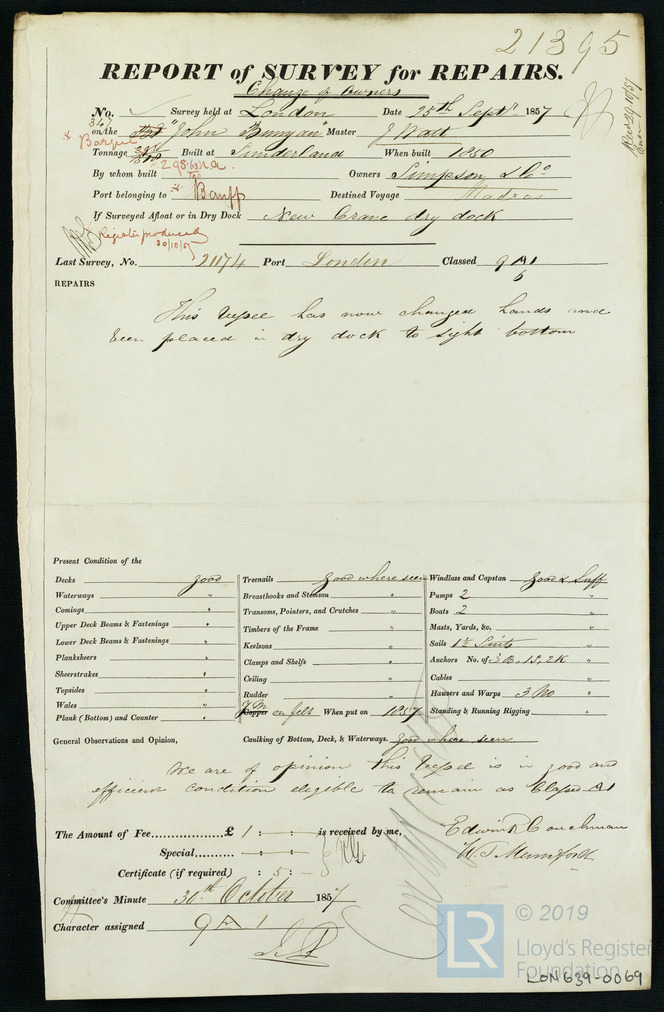 21395
REPORT of SURVEY for REPAIRS.
Change of Owners
No. Survey held at London Date 25th Septr 1857
Recd 29/10/57
347
on the "John Bunyan" Master J Watt
Barque
Tonnage Built at Sunderland When built 1850
298
By whom built Owners Simpson & Co
Port belonging to Banff Destined Voyage Madras
If Surveyed Afloat or in Dry Dock New Crane dry dock
Register produced
30/10/57
Last Survey, No. 21174 Port London Classed 9 A1
6
REPAIRS
This Vessel has now changed hands and
been placed in dry dock to sight bottom
Present Condition of the
Decks good Treenails good where seen Windlass and Capstan good & Suff
Waterways " Breasthooks and Stemson " Pumps 2 "
Comings " Transoms, Pointers, and Crutches " Boats 2 "
Upper Deck Beams & Fastenings " Timbers of the Frame " Masts, Yards, &c. "
Lower Deck Beams & Fastenings " Keelsons " Sails 1½ Suits "
Planksheers " Clamps and Shelfs " Anchors No. of 3 B, 1 S, 2 K "
Sheerstrakes " Ceiling " Cables "
Topsides " Rudder " Hawsers and Warps 3 No "
Wales " Y.M. Copper on felt When put on 1857 Standing & Running Rigging "
Plank (Bottom) and Counter "
General Observations and Opinion, Caulking of Bottom, Deck, & Waterways. good where seen
We are of opinion this Vessel is in good and
efficient condition eligible to remain as Classed A1
The Amount of Fee £ 1 : - : - is received by me, Edwin R Couchman
Special - : - : - W. T. Mumford
Certificate (if required) : 5 : -
Committee's Minute 30th October 1857
Character assigned 9 A 1
© 2019
LR
Lloyd's Register
Foundation
LON639-0069